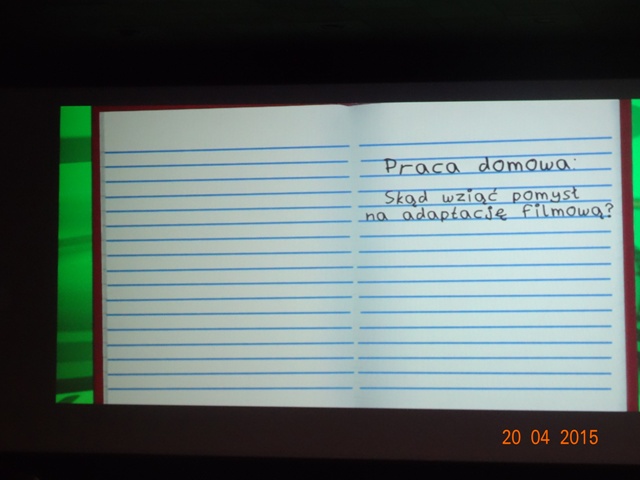 Praca domowa:
Skąd wziąć pomysł
na adaptację filmową?
20 04 2015